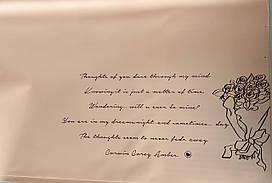 Thoughts of you dare through my mind
Knowing it is just a matter of time
Wondering.. will u ever be mine?
You are in my dreams night and sometimes.. day
The thoughts seem to never fade away
Corwin Corey Amber